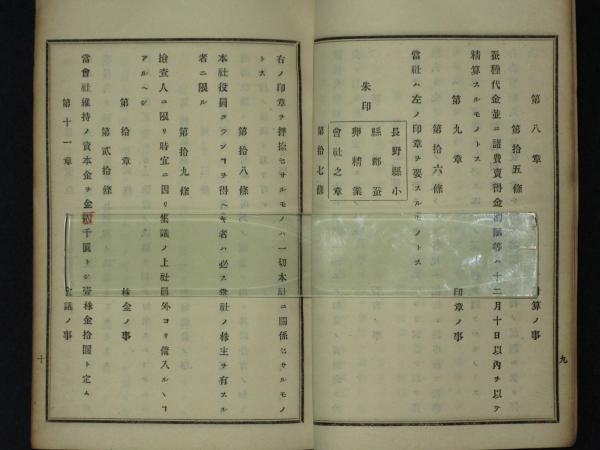 第八章　算ノ事
第拾五條
蚕種代金並ニ諸費賣得金 等ハ十二月十日以內ヲ以テ
精算スルモノトス
第九章　印章ノ事
第拾六條
當社ハ左ノ印章ヲ要スルモノトス
朱印
長野縣小
縣郡蚕
卵精業
會社之章
第拾七條
九
右ノ印章ヲ押捺セサルモノハ一切本社ニ關係セサルモノ
トス
第拾八條
本社役員タランヿヲ得ヘキ者ハ必ス當社ノ株主ヲ有スル
者ニ限ル
第拾九條
撿査人ニ限リ時宜ニ因リ集議ノ上社員外ヨリ傭入ルヽヿ
アルヘシ
第拾章　株金ノ事
第貳拾條
當會社維持ノ資本金ヲ金 千圓トシ壹株金拾圓ト定ム
第十一章　會議ノ事
十